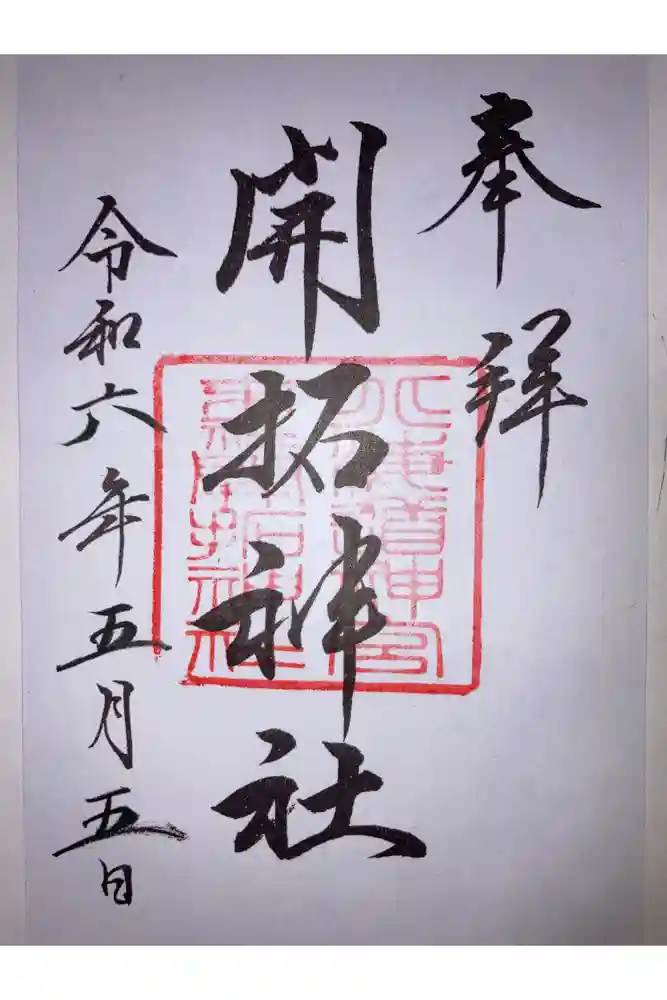 奉拝
開拓神社
令和六年五月五日
北海道神宮
開拓神社